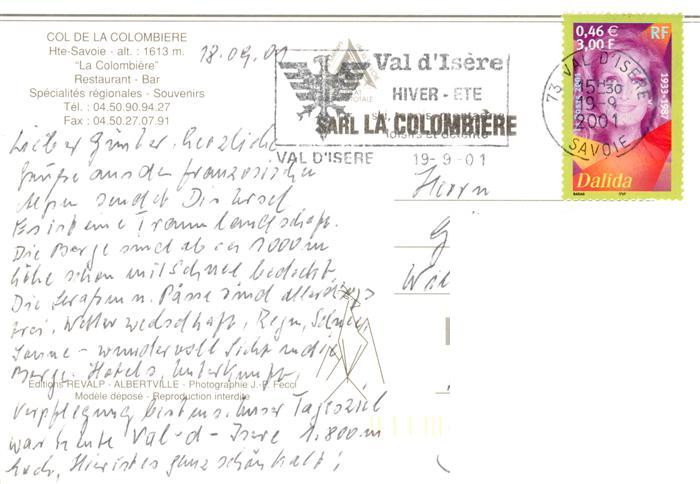 COL DE LA COLOMBIERE
Hte-Savoie - alt. : 1613 m.
"La Colombière"
Restaurant - Bar
Spécialités régionales - Souvenirs
Tél. : 04.50.90.94.27
Fax : 04.50.27.07.91
18.09.01
Val d'Isère
HIVER - ETE
SARL LA COLOMBIÈRE
loisirs et détente
VAL D'ISERE 19-9-01
0,46 €
3,00 F
RF
1933-1987
Dalida
73 VAL D'ISERE
15-30
19-9
2001
SAVOIE
Lieber Günter. Herzliche
Grüße aus den französischen
Alpen sendet Dir
Es ist eine Traumlandschaft.
Die Berge sind ab ca 2000 m
Höhe schon mit Schnee bedeckt.
Die Straßen u. Pässe sind allerdings
frei. Wetter wechselhaft, Regen, Schnee,
Sonne - wundervoll Sicht und die
Berge. Hotels, Unterkunft,
Editions REVALP - ALBERTVILLE - Photographie J.-F. Fecci
Modèle déposé - Reproduction interdite
Verpflegung bestens. Unser Tagesziel
war heute Val-d-Isere 1.800 m
hoch, Hier ist es ganz schön kalt!
Herrn